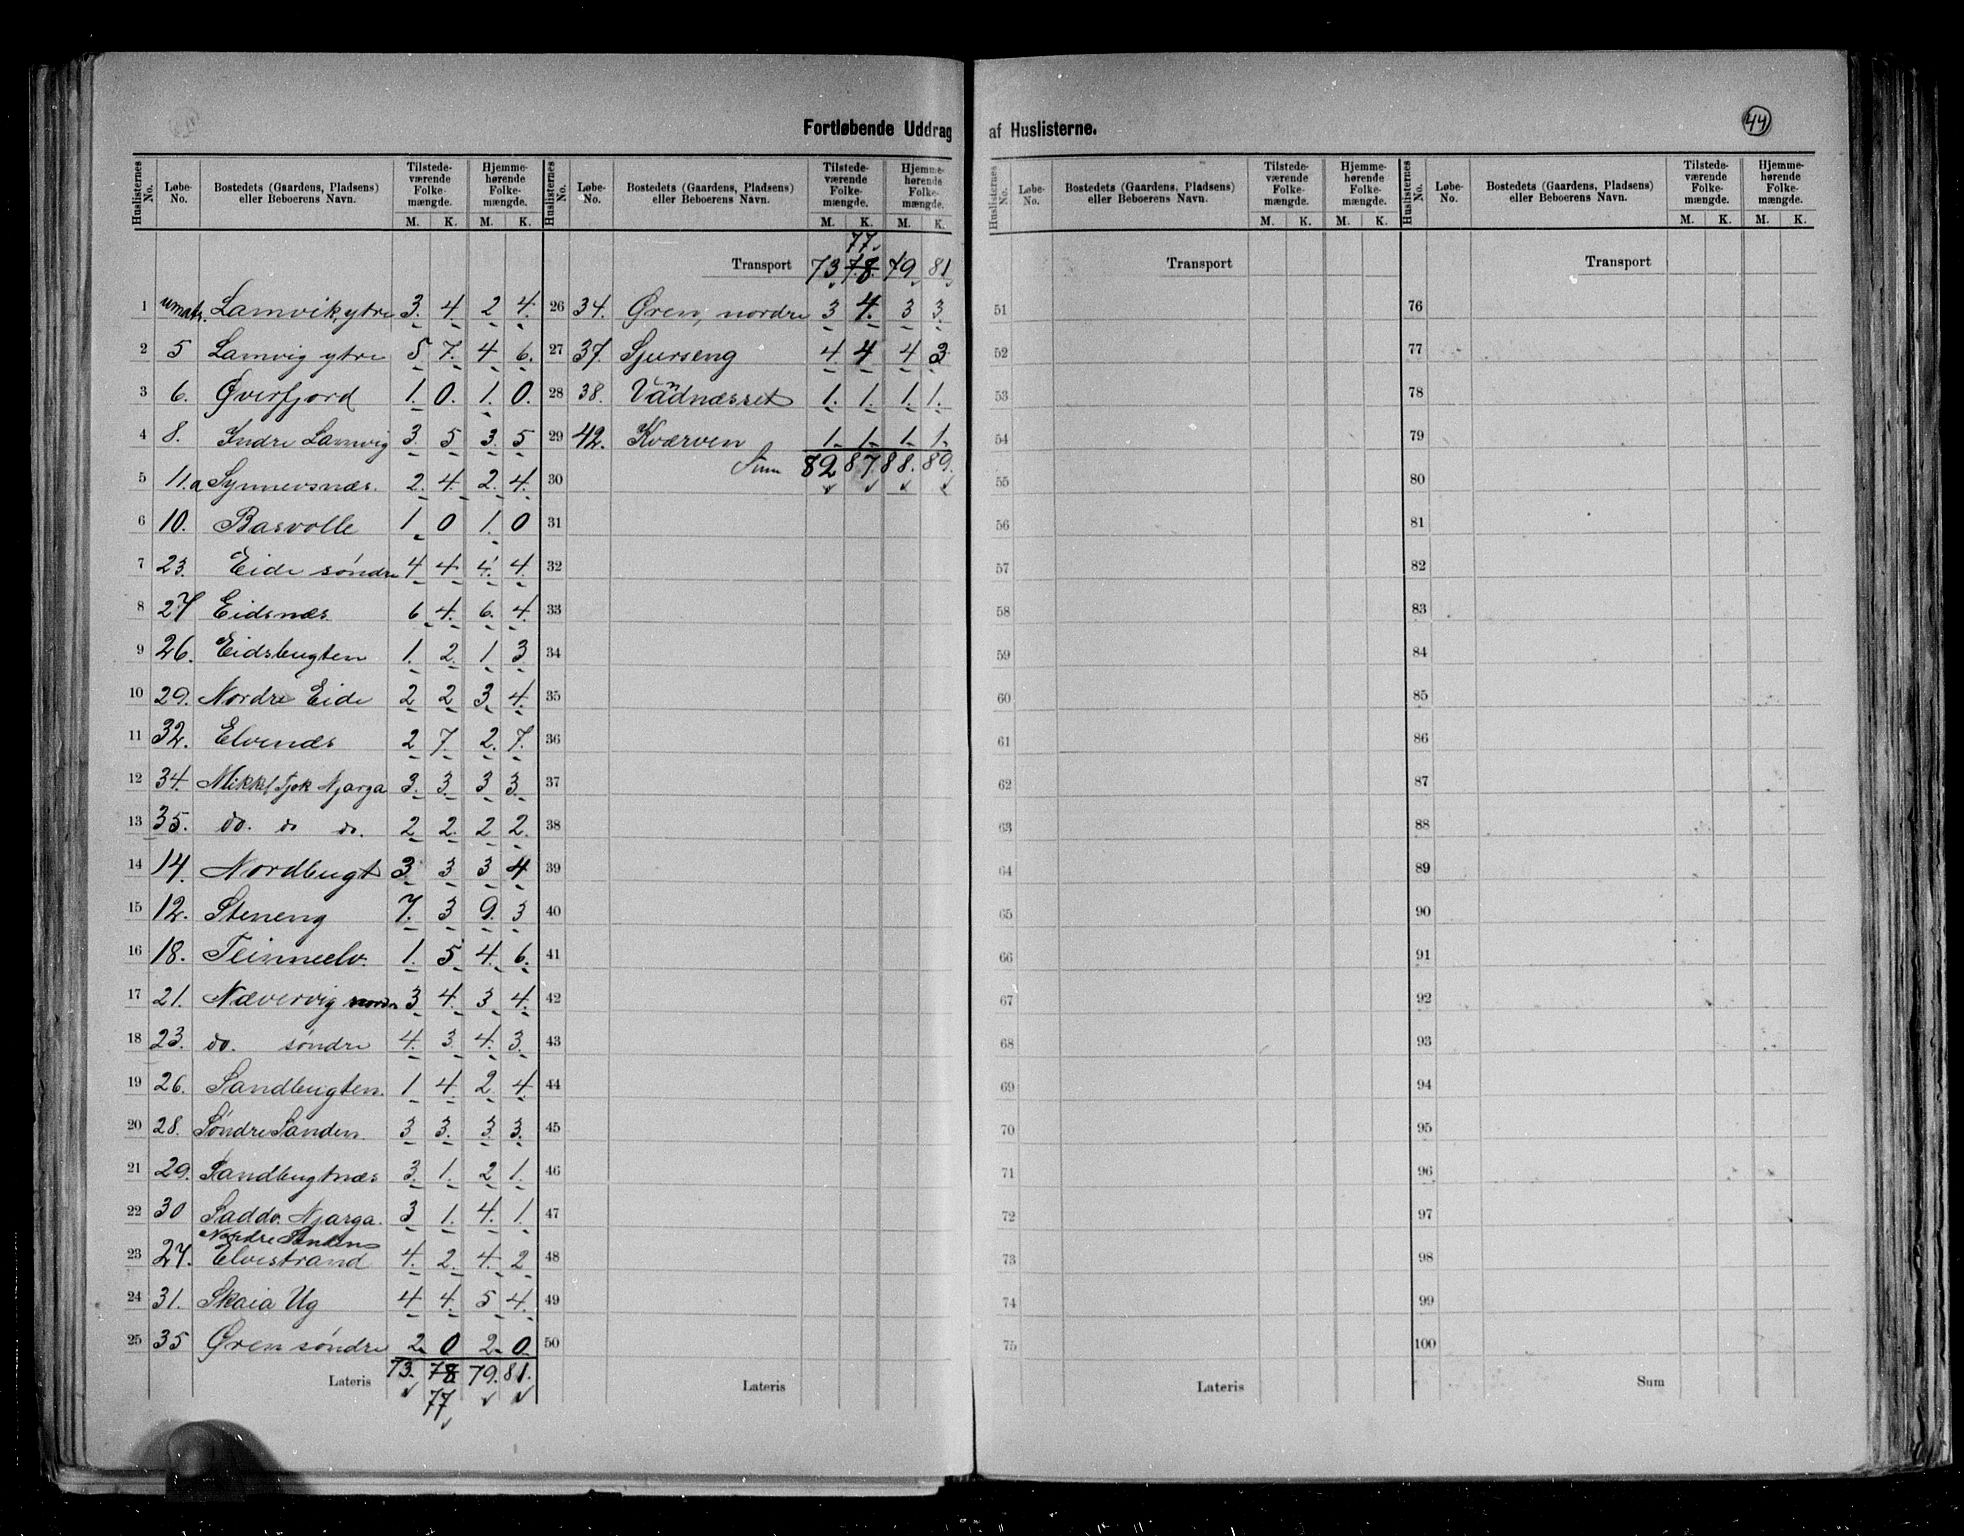 44
Fortløbende Uddrag af Huslisterne.
Huslisternes No. Løbe-No. Bostedets (Gaardens, Pladsens) eller Beboerens Navn. Tilstedeværende Folkemængde. M. K. Hjemmehørende Folkemængde. M. K.
Huslisternes No. Løbe-No. Bostedets (Gaardens, Pladsens) eller Beboerens Navn. Tilstedeværende Folkemængde. M. K. Hjemmehørende Folkemængde. M. K.
Huslisternes No. Løbe-No. Bostedets (Gaardens, Pladsens) eller Beboerens Navn. Tilstedeværende Folkemængde. M. K. Hjemmehørende Folkemængde. M. K.
Huslisternes No. Løbe-No. Bostedets (Gaardens, Pladsens) eller Beboerens Navn. Tilstedeværende Folkemængde. M. K. Hjemmehørende Folkemængde. M. K.
1 umatr. Lamvik, ytre 3. 4. 2 4.
2 5 Lamvig ytre 5 7. 4 6.
3 6. Øverfjord 1. 0. 1. 0.
4 8. Indre Lamvig 3. 5 3. 5
5 11.a Synnevsnæs. 2. 4. 2. 4.
6 10. Basvolle 1 0 1. 0
7 23. Eide søndre 4 4. 4. 4.
8 27 Eidsnæs. 6 4. 6. 4.
9 26. Eidsbugten 1. 2. 1 3
10 29. Nordre Eide 2 2 3. 4.
11 32. Elvenæs 2 7. 2. 7.
12 34. Mikkel Njarga 3. 3. 3 3.
13 35. do. do do. 2 2. 2 2.
14 14. Nordbugt 3 3 3 4
15 12. Steneng 7. 3 9. 3
16 18. 1. 5 4. 6.
17 21. Nævervig nordre 3 4. 3 4.
18 23. do. søndre 4. 3. 4. 3.
19 26. Sandbugten. 1 4 2. 4
20 28. Søndre Sanden. 3 3. 3 3.
21 29. Sandbugtnæs 3. 1. 2 1.
22 30 Saddo Njarga. 3 1. 4. 1.
Nordre Sanden
23 27. Elvestrand 4. 2. 4. 2
24 31. Skaia Ug 4 4. 5 4.
25 35 Øren søndre 2 0 2. 0.
Lateris 73. 78 79. 81.
77
77.
Transport 73 78. 79. 81
26 34. Øren, nordre 3 4. 3 3.
27 37. Sjurseng 4. 4 4 3
28 38. Vädnæsset 1. 1. 1. 1.
29 42. Kværven 1. 1. 1. 1.
30 Sum 82 87. 88. 89.
31
32
33
34
35
36
37
38
39
40
41
42
43
44
45
46
47
48
49
50
Lateris
Transport
51
52
53
54
55
56
57
58
59
60
61
62
63
64
65
66
67
68
69
70
71
72
73
74
75
Lateris
Transport
76
77
78
79
80
81
82
83
84
85
86
87
88
89
90
91
92
93
94
95
96
97
98
99
100
Sum